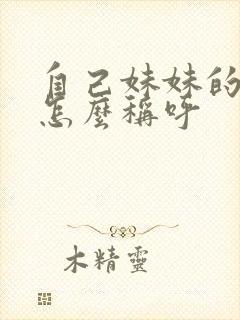 自己妹妹的
怎麼稱呼
木精靈